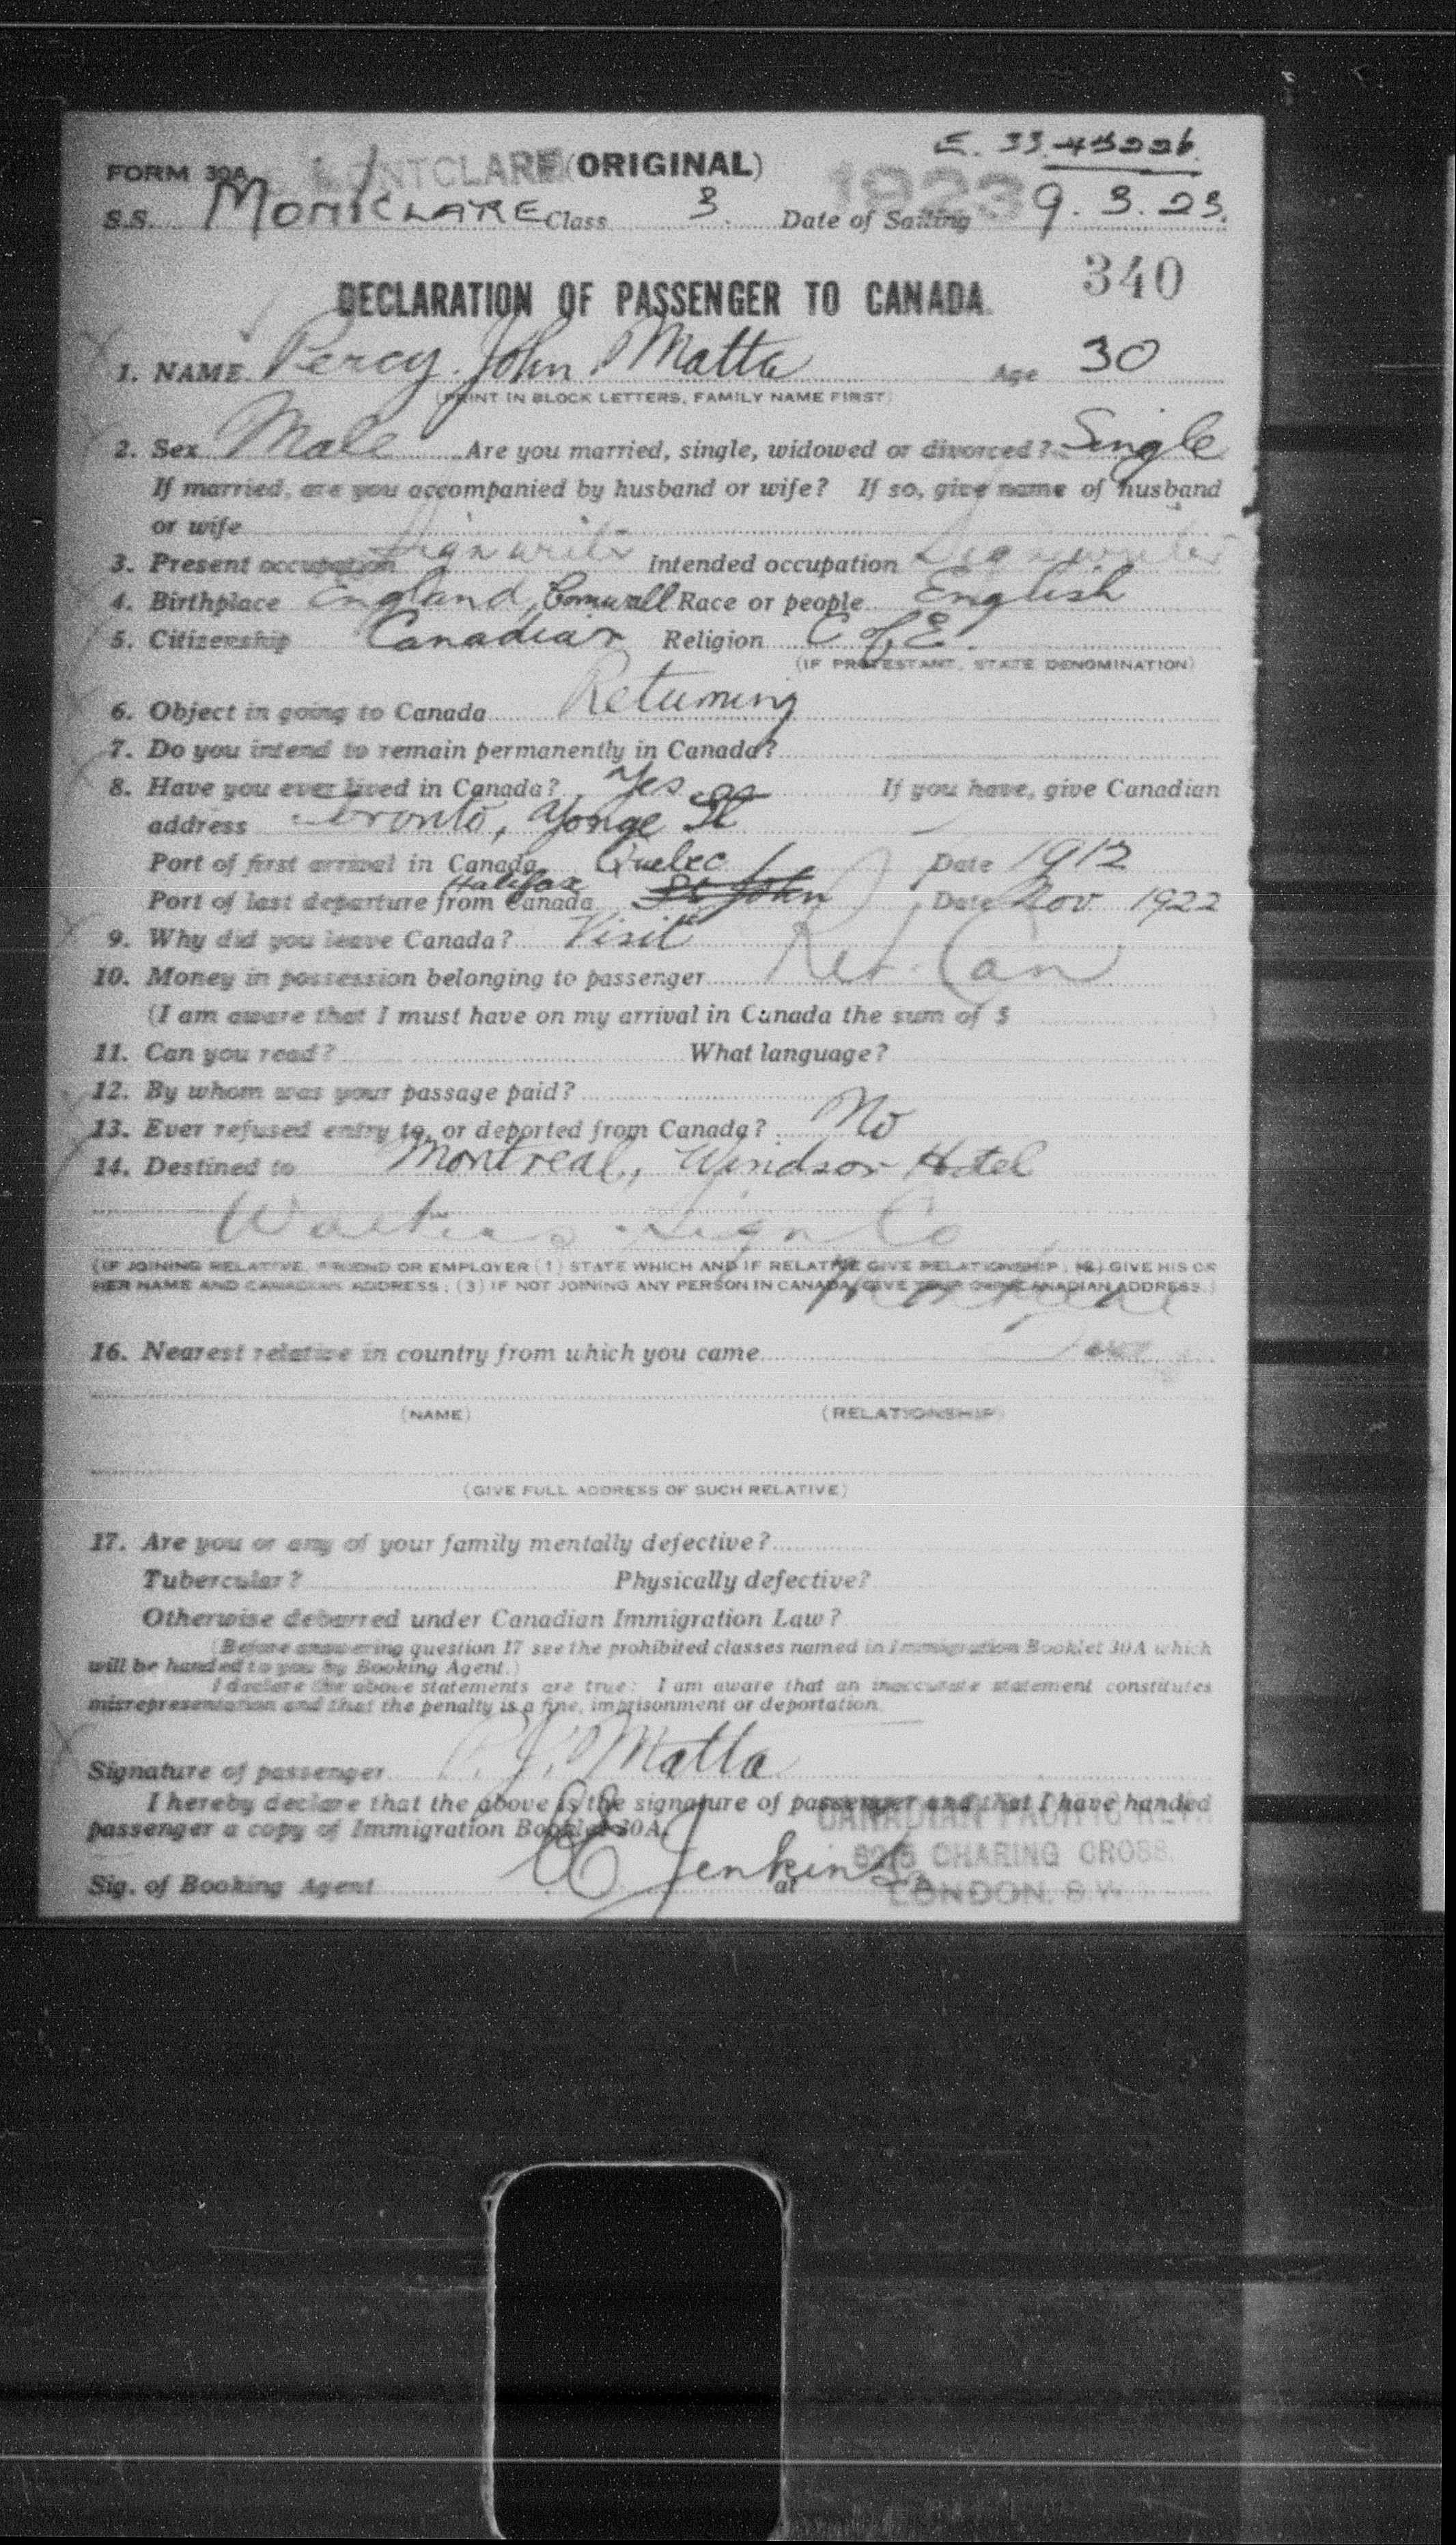 E. 33.45226
FORM 30A MONTCLARE (ORIGINAL) 1923
S.S. MONTCLARE Class 3. Date of Sailing 9.3.23.
340
DECLARATION OF PASSENGER TO CANADA.
1. NAME Percy John Matta Age 30
(PRINT IN BLOCK LETTERS, FAMILY NAME FIRST)
2. Sex Male Are you married, single, widowed or divorced? Single
If married, are you accompanied by husband or wife? If so, give name of husband
or wife
3. Present occupation Signwriter Intended occupation Signwriter
4. Birthplace England, Cornwall Race or people English
5. Citizenship Canadian Religion C of E.
(IF PROTESTANT, STATE DENOMINATION)
6. Object in going to Canada Returning
7. Do you intend to remain permanently in Canada?
8. Have you ever lived in Canada? Yes If you have, give Canadian
address Toronto, Yonge St
Port of first arrival in Canada Quebec Date 1912
Port of last departure from Canada Halifax St John Date Nov 1922
9. Why did you leave Canada? Visit Ret. Can
10. Money in possession belonging to passenger
(I am aware that I must have on my arrival in Canada the sum of $ )
11. Can you read? What language?
12. By whom was your passage paid?
13. Ever refused entry to, or deported from Canada? No
14. Destined to Montreal, Windsor Hotel
Walters Sign Co
(IF JOINING RELATIVE, FRIEND OR EMPLOYER (1) STATE WHICH AND IF RELATIVE GIVE RELATIONSHIP; (2) GIVE HIS OR
HER NAME AND CANADIAN ADDRESS; (3) IF NOT JOINING ANY PERSON IN CANADA, GIVE YOUR OWN CANADIAN ADDRESS.)
Montreal
16. Nearest relative in country from which you came
(NAME) (RELATIONSHIP)
(GIVE FULL ADDRESS OF SUCH RELATIVE)
17. Are you or any of your family mentally defective?
Tubercular? Physically defective?
Otherwise debarred under Canadian Immigration Law?
(Before answering question 17 see the prohibited classes named in Immigration Booklet 30A which
will be handed to you by Booking Agent.)
I declare the above statements are true: I am aware that an inaccurate statement constitutes
misrepresentation and that the penalty is a fine, imprisonment or deportation.
Signature of passenger P. J. Matta
I hereby declare that the above is the signature of passenger and that I have handed
passenger a copy of Immigration Booklet 30A.
CANADIAN PACIFIC RLY.
62/5 CHARING CROSS,
Sig. of Booking Agent Jenkins at LONDON, S.W.